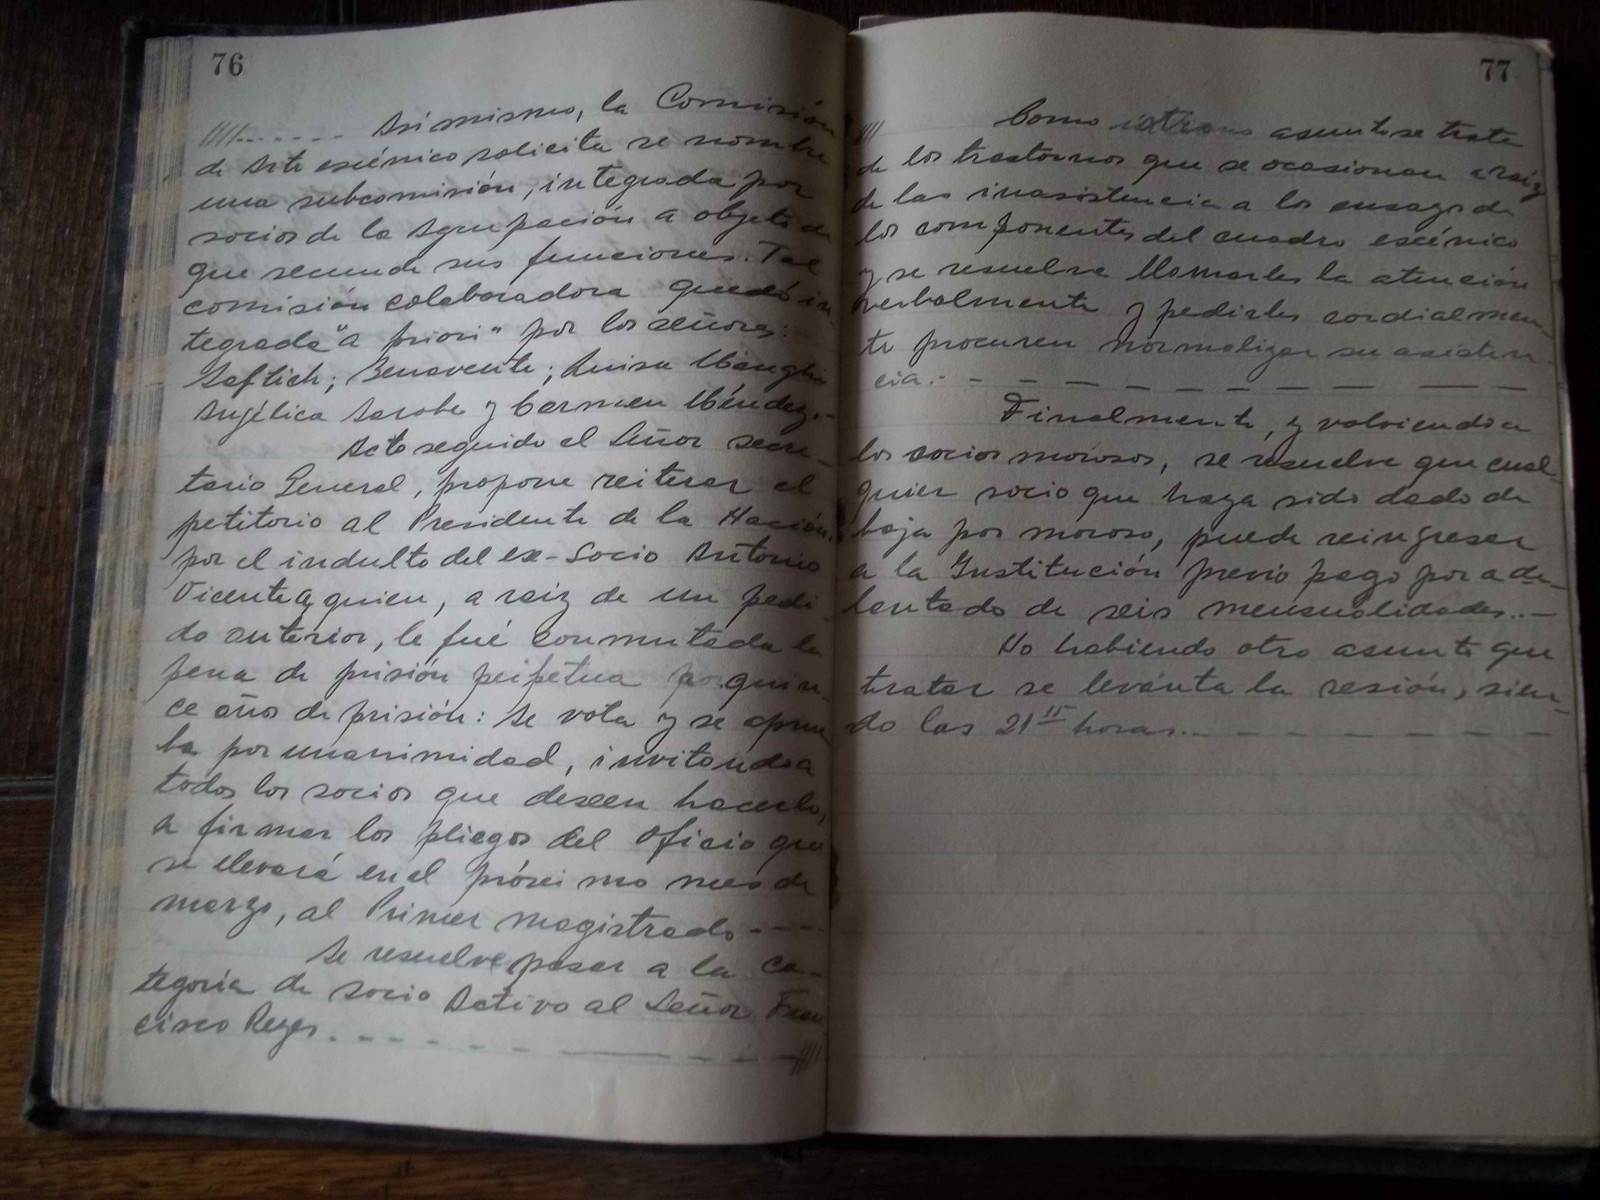 76
////------ Asimismo, la Comisión
de Arte escénico solicita se nombre
una subcomisión, integrada por
socios de la Agrupación a objeto de
que secunde sus funciones. Tal
comisión colaboradora quedó in-
tegrada "a priori" por los señores:
Benavente; Luisa
Angélica y Carmen Méndez.-
Acto seguido el Señor secre-
tario General, propone reiterar el
petitorio al Presidente de la Nación,
por el indulto del ex-Socio Antonio
Vicente a quien, a raiz de un pedi-
do anterior, le fué conmutada la
pena de prisión perpetua por quin-
ce años de prisión: Se vota y se aprue
ba por unanimidad, invitando a
todos los socios que deseen hacerlo,
a firmar los pliegos del oficio que
se elevará en el próximo mes de
marzo, al Primer magistrado----
Se resuelve pasar a la ca-
tegoria de socio Activo al Señor Fran
cisco Reyes.- - - - - - ////
77
//// Como asunto se trata
de los trastornos que se ocasionan a raiz
de las inasistencia a los ensayos de
los componentes del cuadro escénico
y se resuelve llamarles la atención
verbalmente y pedirles cordialmen-
te procuren normalizar su asisten-
cia.- - - - - - - - -
Finalmente, y volviendo a
los socios morosos, se resuelve que cual-
quier socio que haya sido dado de
baja por moroso, puede reingresar
a la Institución previo pago por ade-
lantado de seis mensualidades..-
No habiendo otro asunto que
tratar se levanta la sesión, sien-
do las 21 15 horas.- - - - - - - -